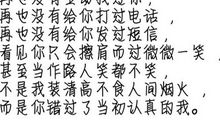 再也没有给你打过电话，
再也没有给你发过短信，
看见你只会擦肩而过微微一笑，
甚至当作路人笑都不笑，
不是我装清高不食人间烟火，
而是你错过了当初认真的我。